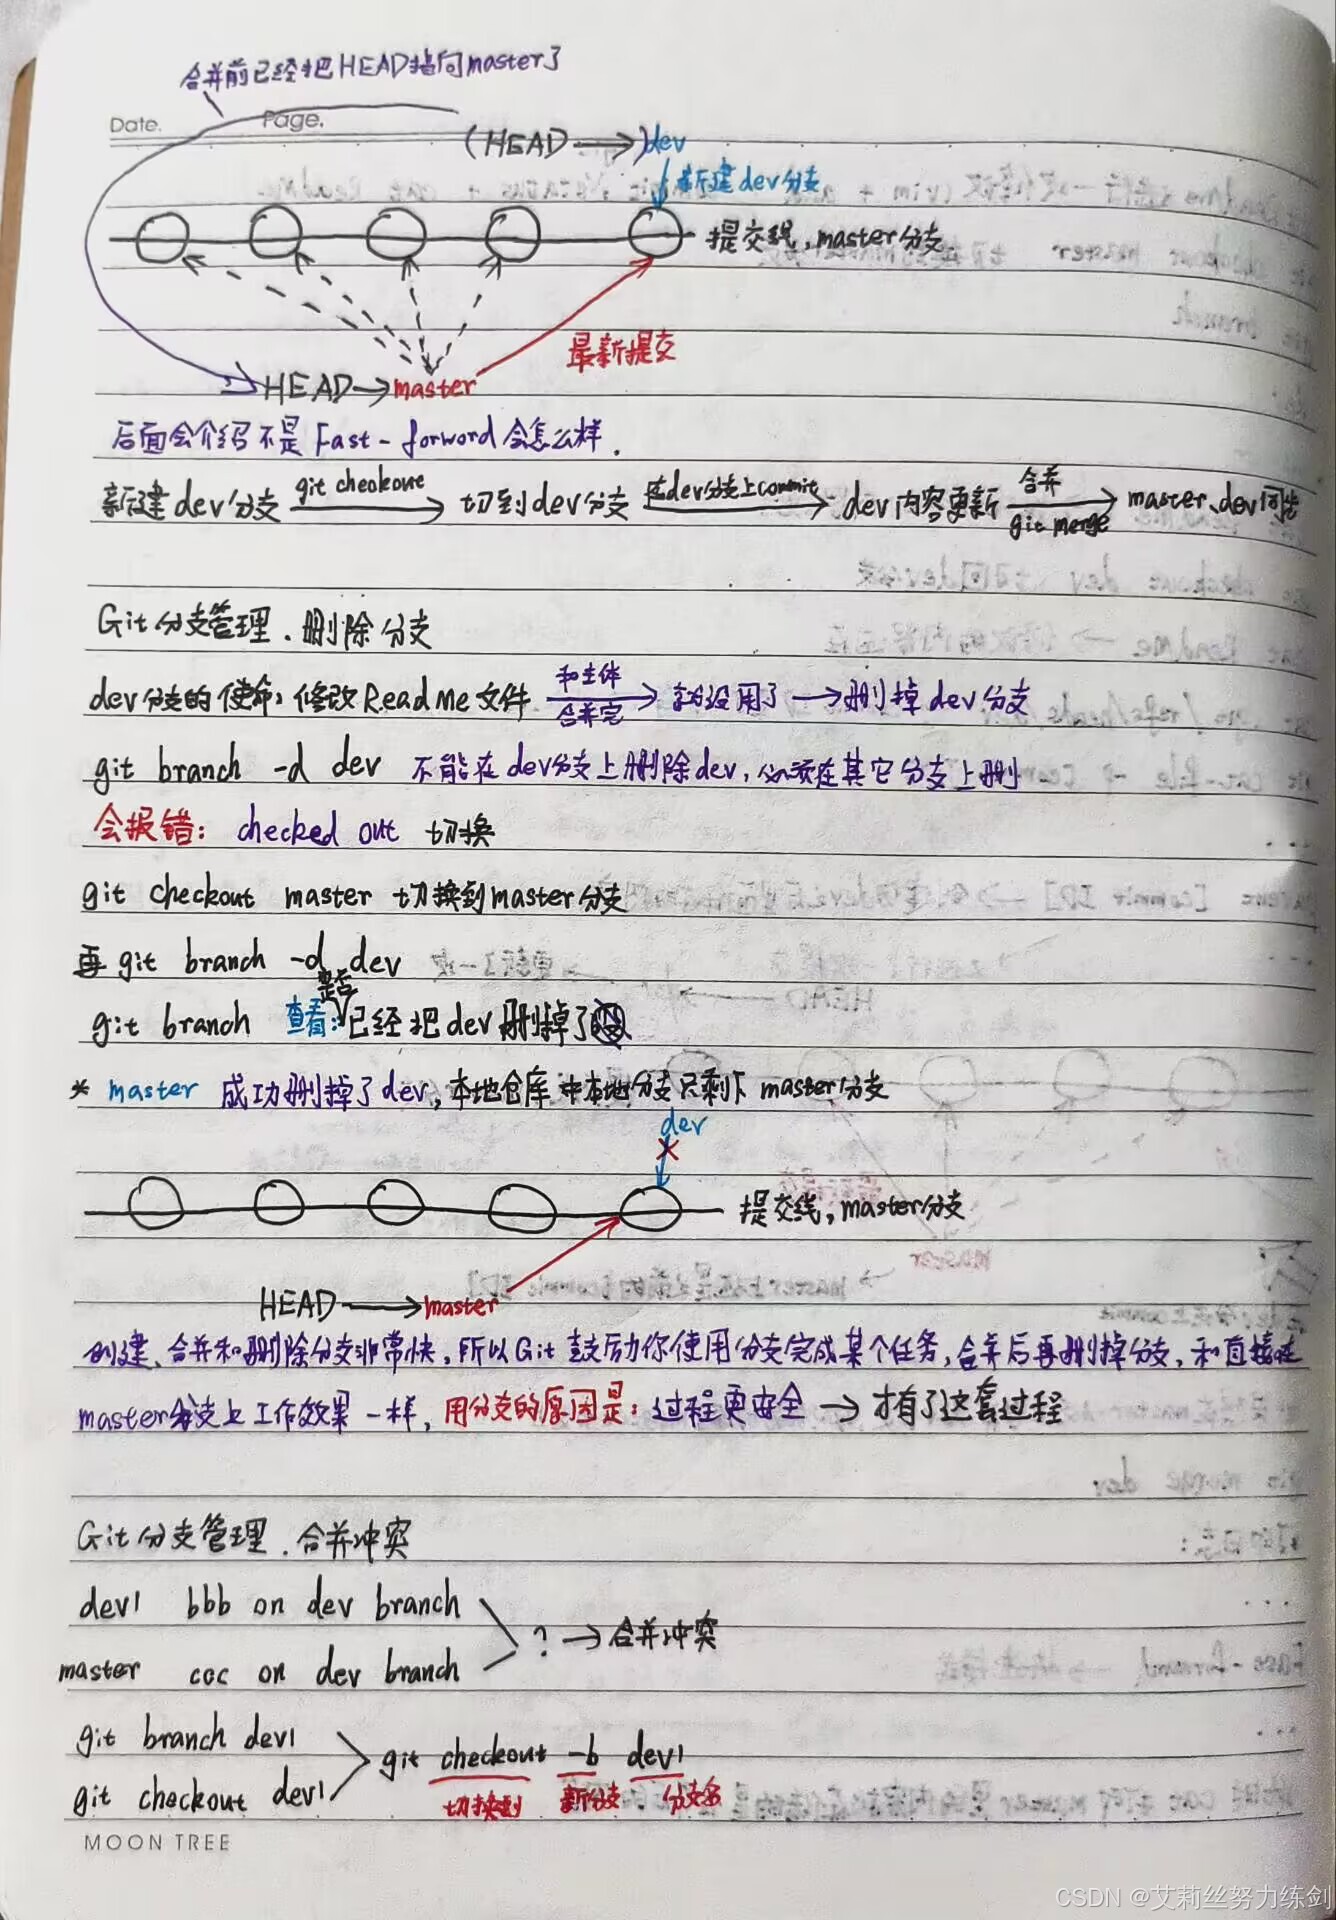 合并前已经把HEAD指向master了
Date.
Page.
(HEAD → )dev
新建dev分支
提交线,master分支
最新提交
HEAD → master
后面会介绍不是Fast-forword会怎么样.
新建dev分支 git checkout → 切到dev分支 在dev分支上commit → dev内容更新 合并 git merge → master、dev同步
Git分支管理.删除分支
dev分支的使命:修改ReadMe文件 和主体合并完 → 就没用了 → 删掉dev分支
git branch -d dev 不能在dev分支上删除dev,必须在其它分支上删
会报错: checked out 切换
git checkout master 切换到master分支
再 git branch -d dev
git branch 查看:是否已经把dev删掉了
* master 成功删掉了dev,本地仓库中本地分支只剩下master分支
dev
提交线,master分支
HEAD → master
创建、合并和删除分支非常快,所以Git鼓励你使用分支完成某个任务,合并后再删掉分支,和直接在
master分支上工作效果一样,用分支的原因是:过程更安全 → 才有了这套过程
Git分支管理.合并冲突
dev1 bbb on dev branch
? → 合并冲突
master ccc on dev branch
git branch dev1
git checkout -b dev1
git checkout dev1
切换到 新分支 分支名
MOON TREE
CSDN @艾莉丝努力练剑